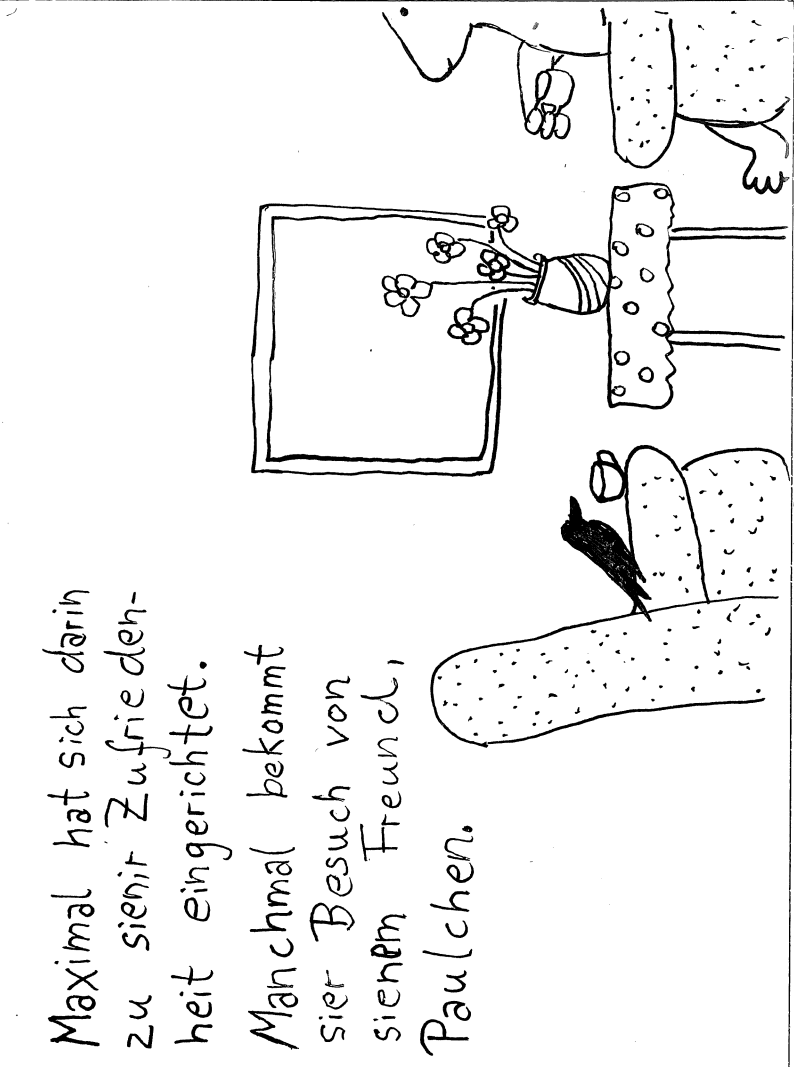 Maximal hat sich darin
zu sienir Zufrieden-
heit eingerichtet.
Manchmal bekommt
sier Besuch von
sienem Freund,
Paulchen.